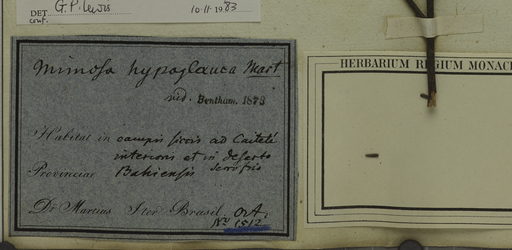 DET. G.P. Lewis 10.11.1983
conf.
Mimosa hypoglauca Mart
vid. Bentham. 1873
Habitat in campis siccis ad Caiteté
interioris et in deserto
Provinciae Bahiensis
Dr Martius Iter Brasil. Oct.
No 1512
HERBARIUM REGIUM MONAC